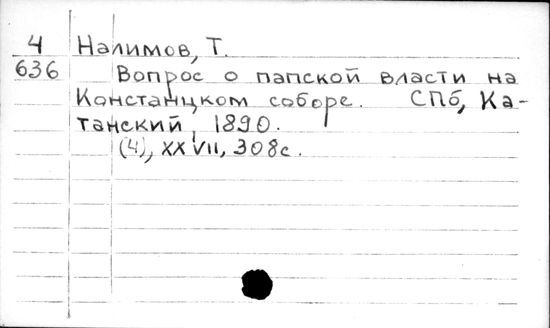 4 Налимов, Т.
636 Вопрос о папской власти на
Констанцком соборе. СПб, Ка-
танский, 1890.
(4), XXVII, 308с.